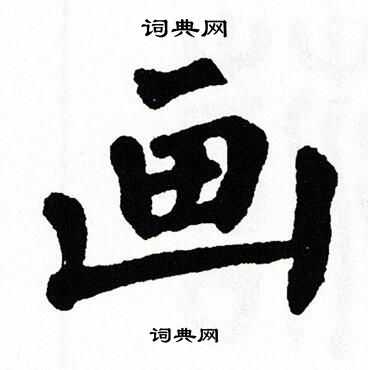 词典网
画
词典网